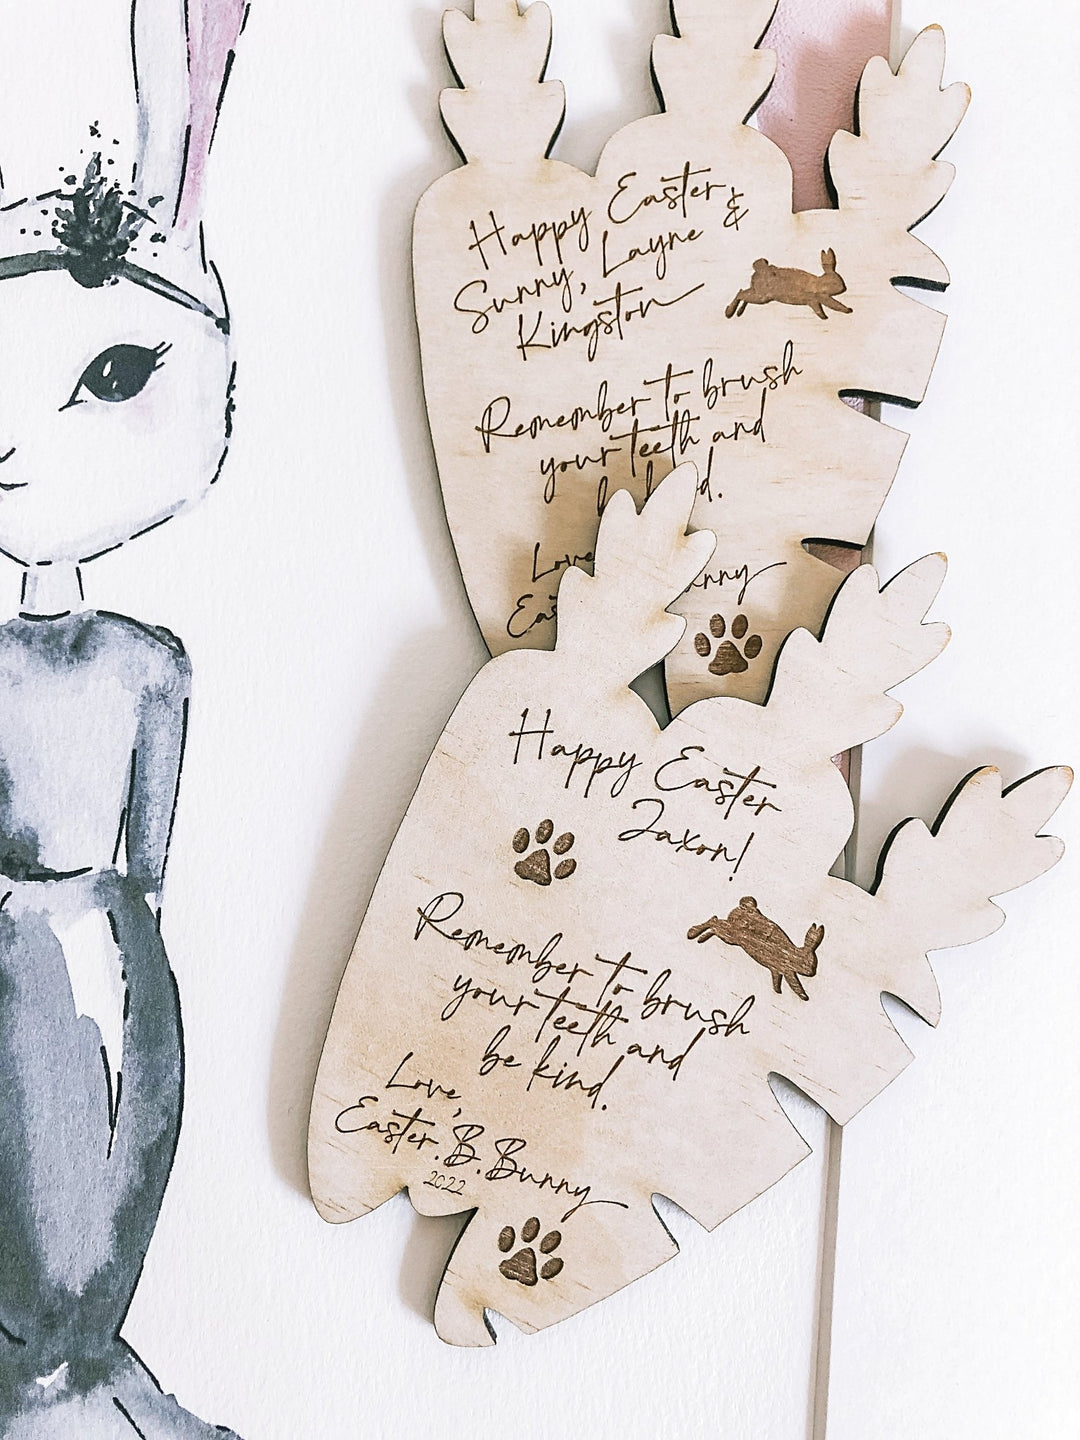 Happy Easter
Sunny, Layne &
Kingston
Remember to brush
your teeth and
Love
Happy Easter
Jaxon!
Remember to brush
your teeth and
be kind.
Love,
Easter.B.Bunny
2022